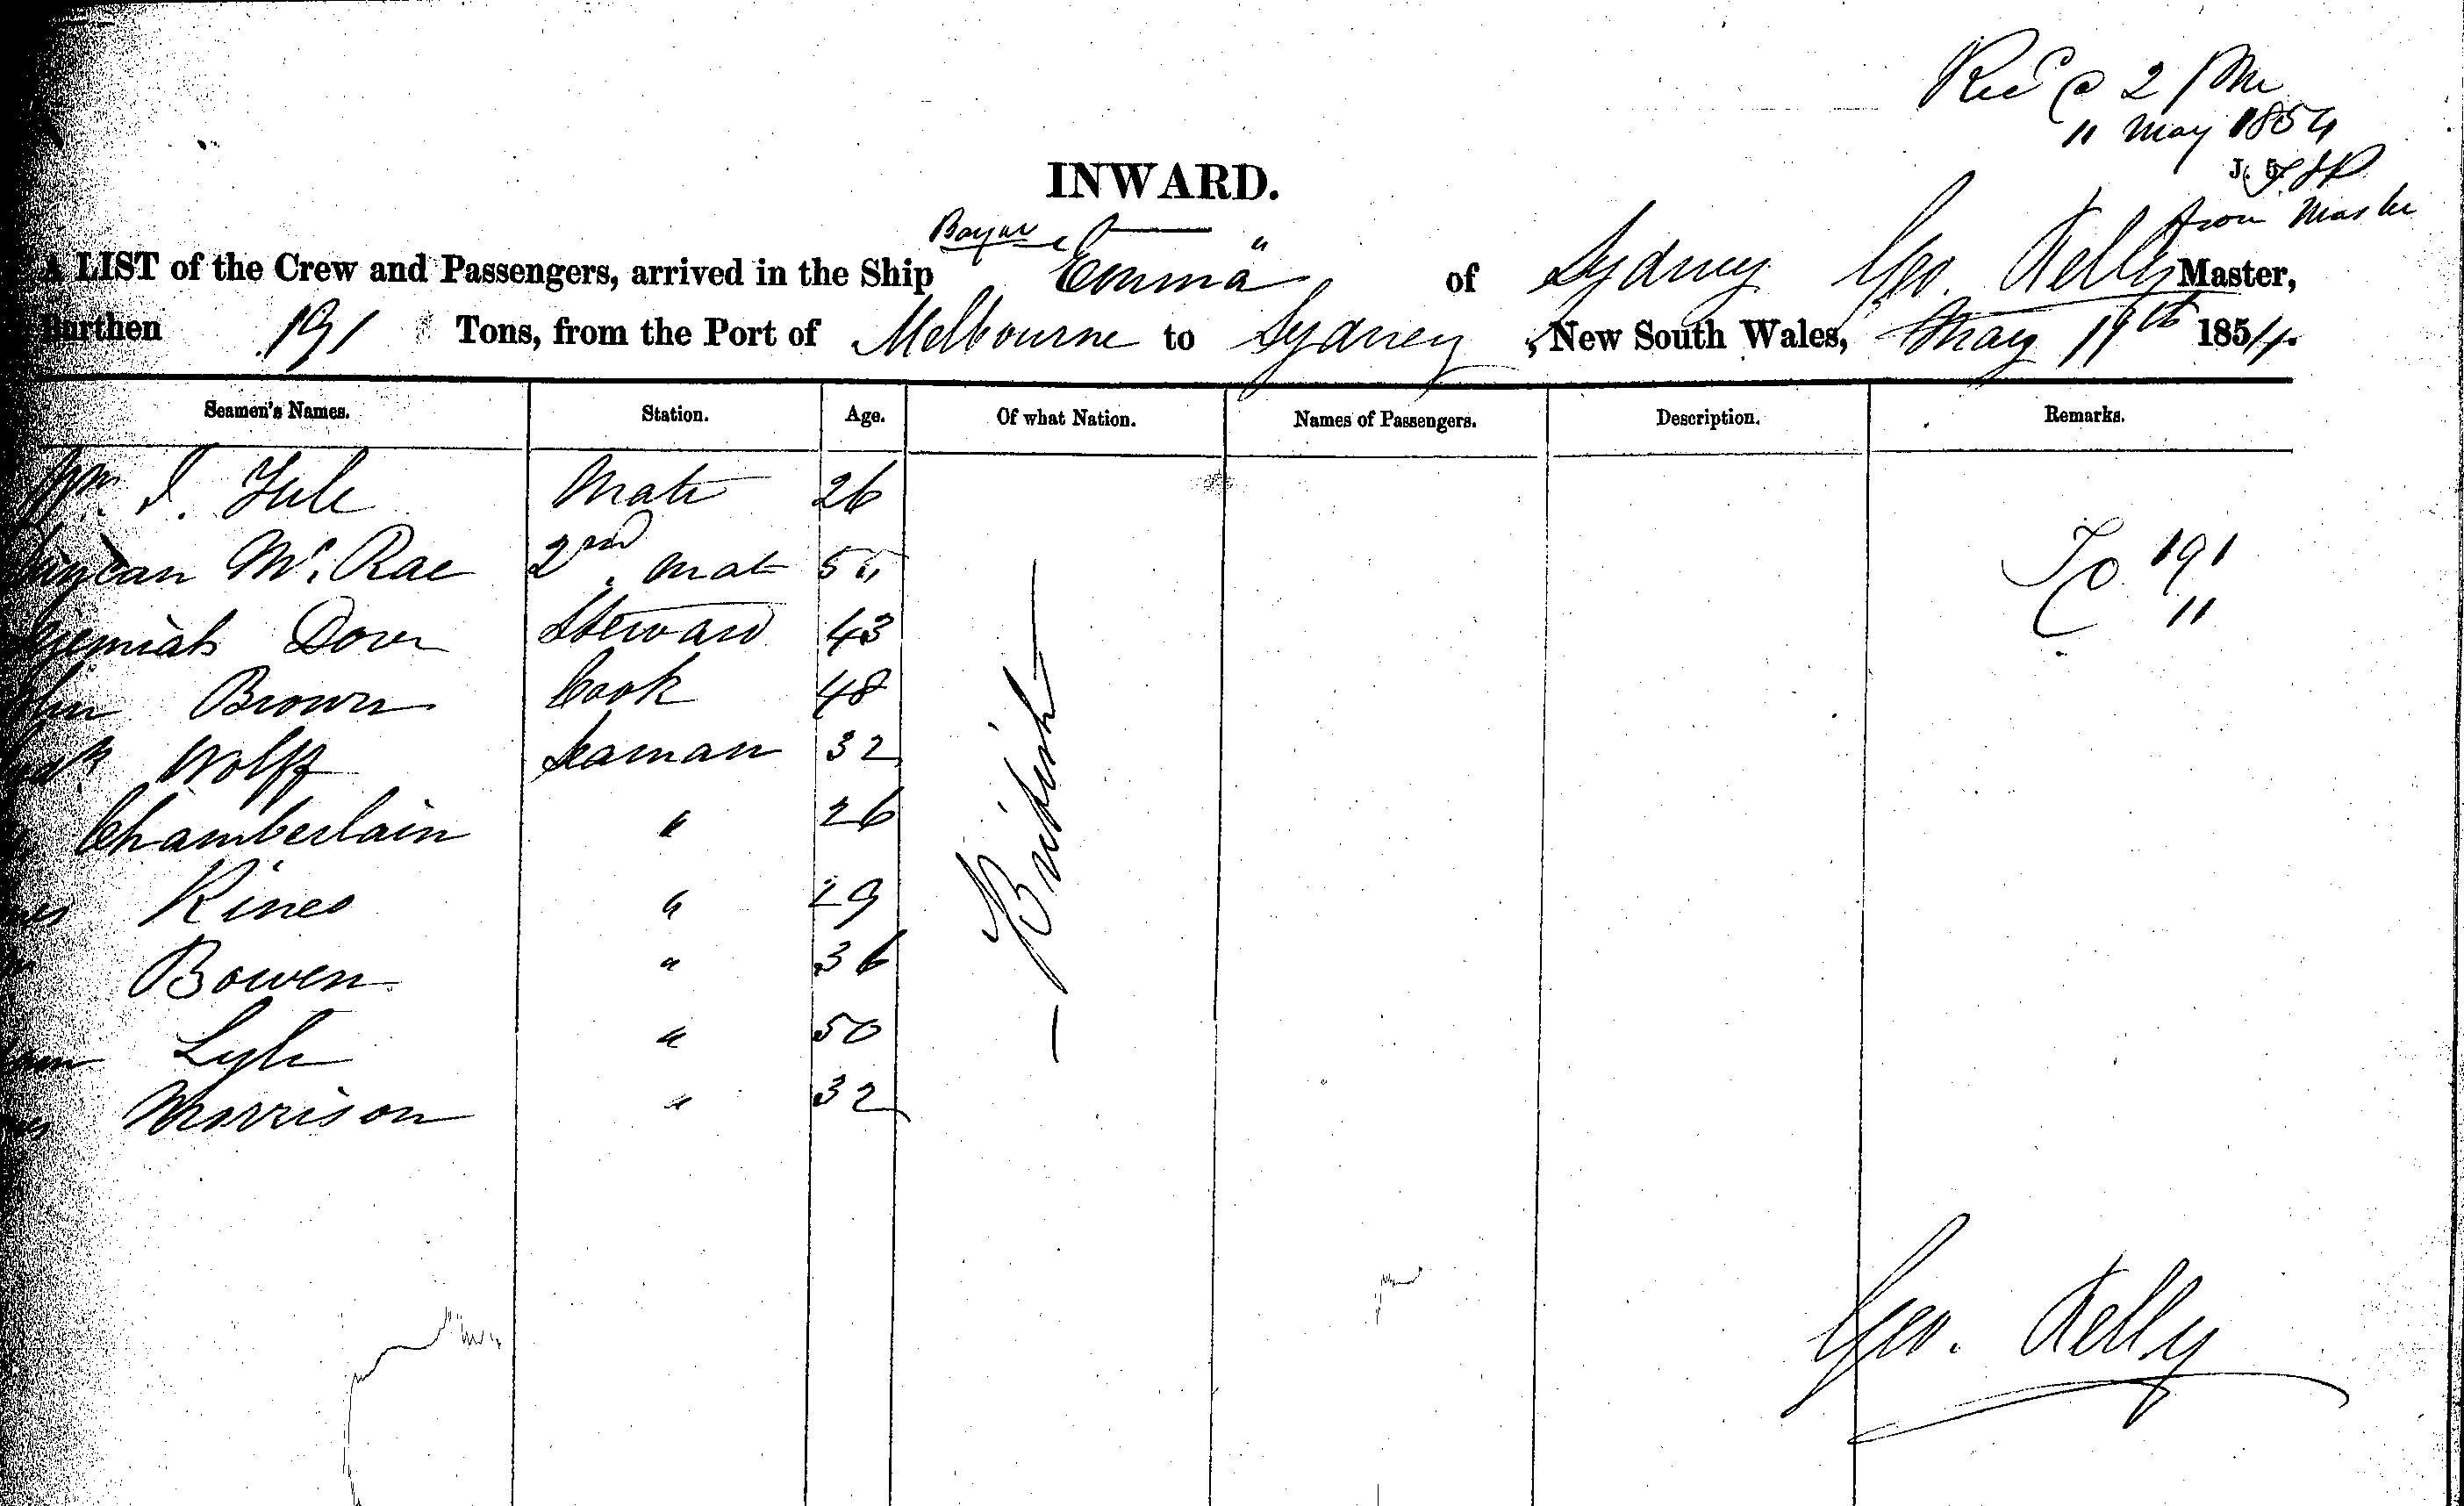 Recd @ 2 PM
11 May 1854
from Master
INWARD.
A LIST of the Crew and Passengers, arrived in the Ship Emma " of Sydney Geo. Kelly Master,
Burthen 191 Tons, from the Port of Melbourne to Sydney, New South Wales, May 11th 1854.
Seamen's Names. Station. Age. Of what Nation. Names of Passengers. Description. Remarks.
Wm. I. Yule Mate 26
Duncan Mc. Rae 2nd Mate
Jeremiah Dover Steward 43
Brown Cook 48
Wolff Seaman 32
Chamberlain " 26
Kines " 29
Bowen " 36
Lyle " 50
Morrison " 32
— British —
191
11
Geo. Kelly